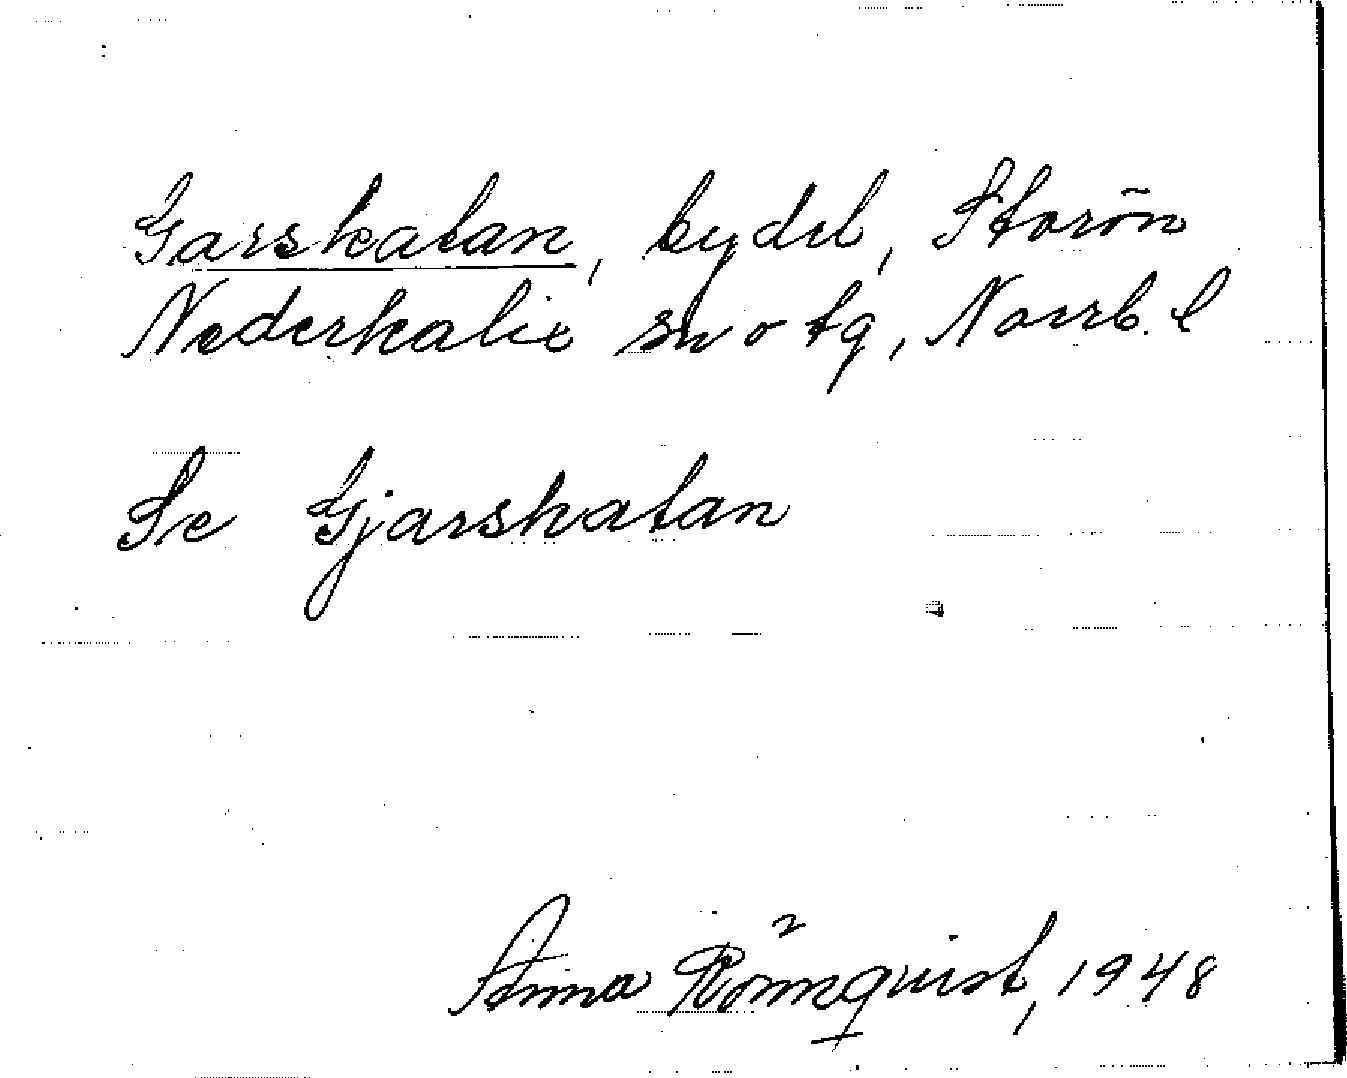 Garskatan, bydel, Storön
Nederkalix sn o tg, Norrb. l
Se Gjarskatan
Anna Rönnquist, 1948